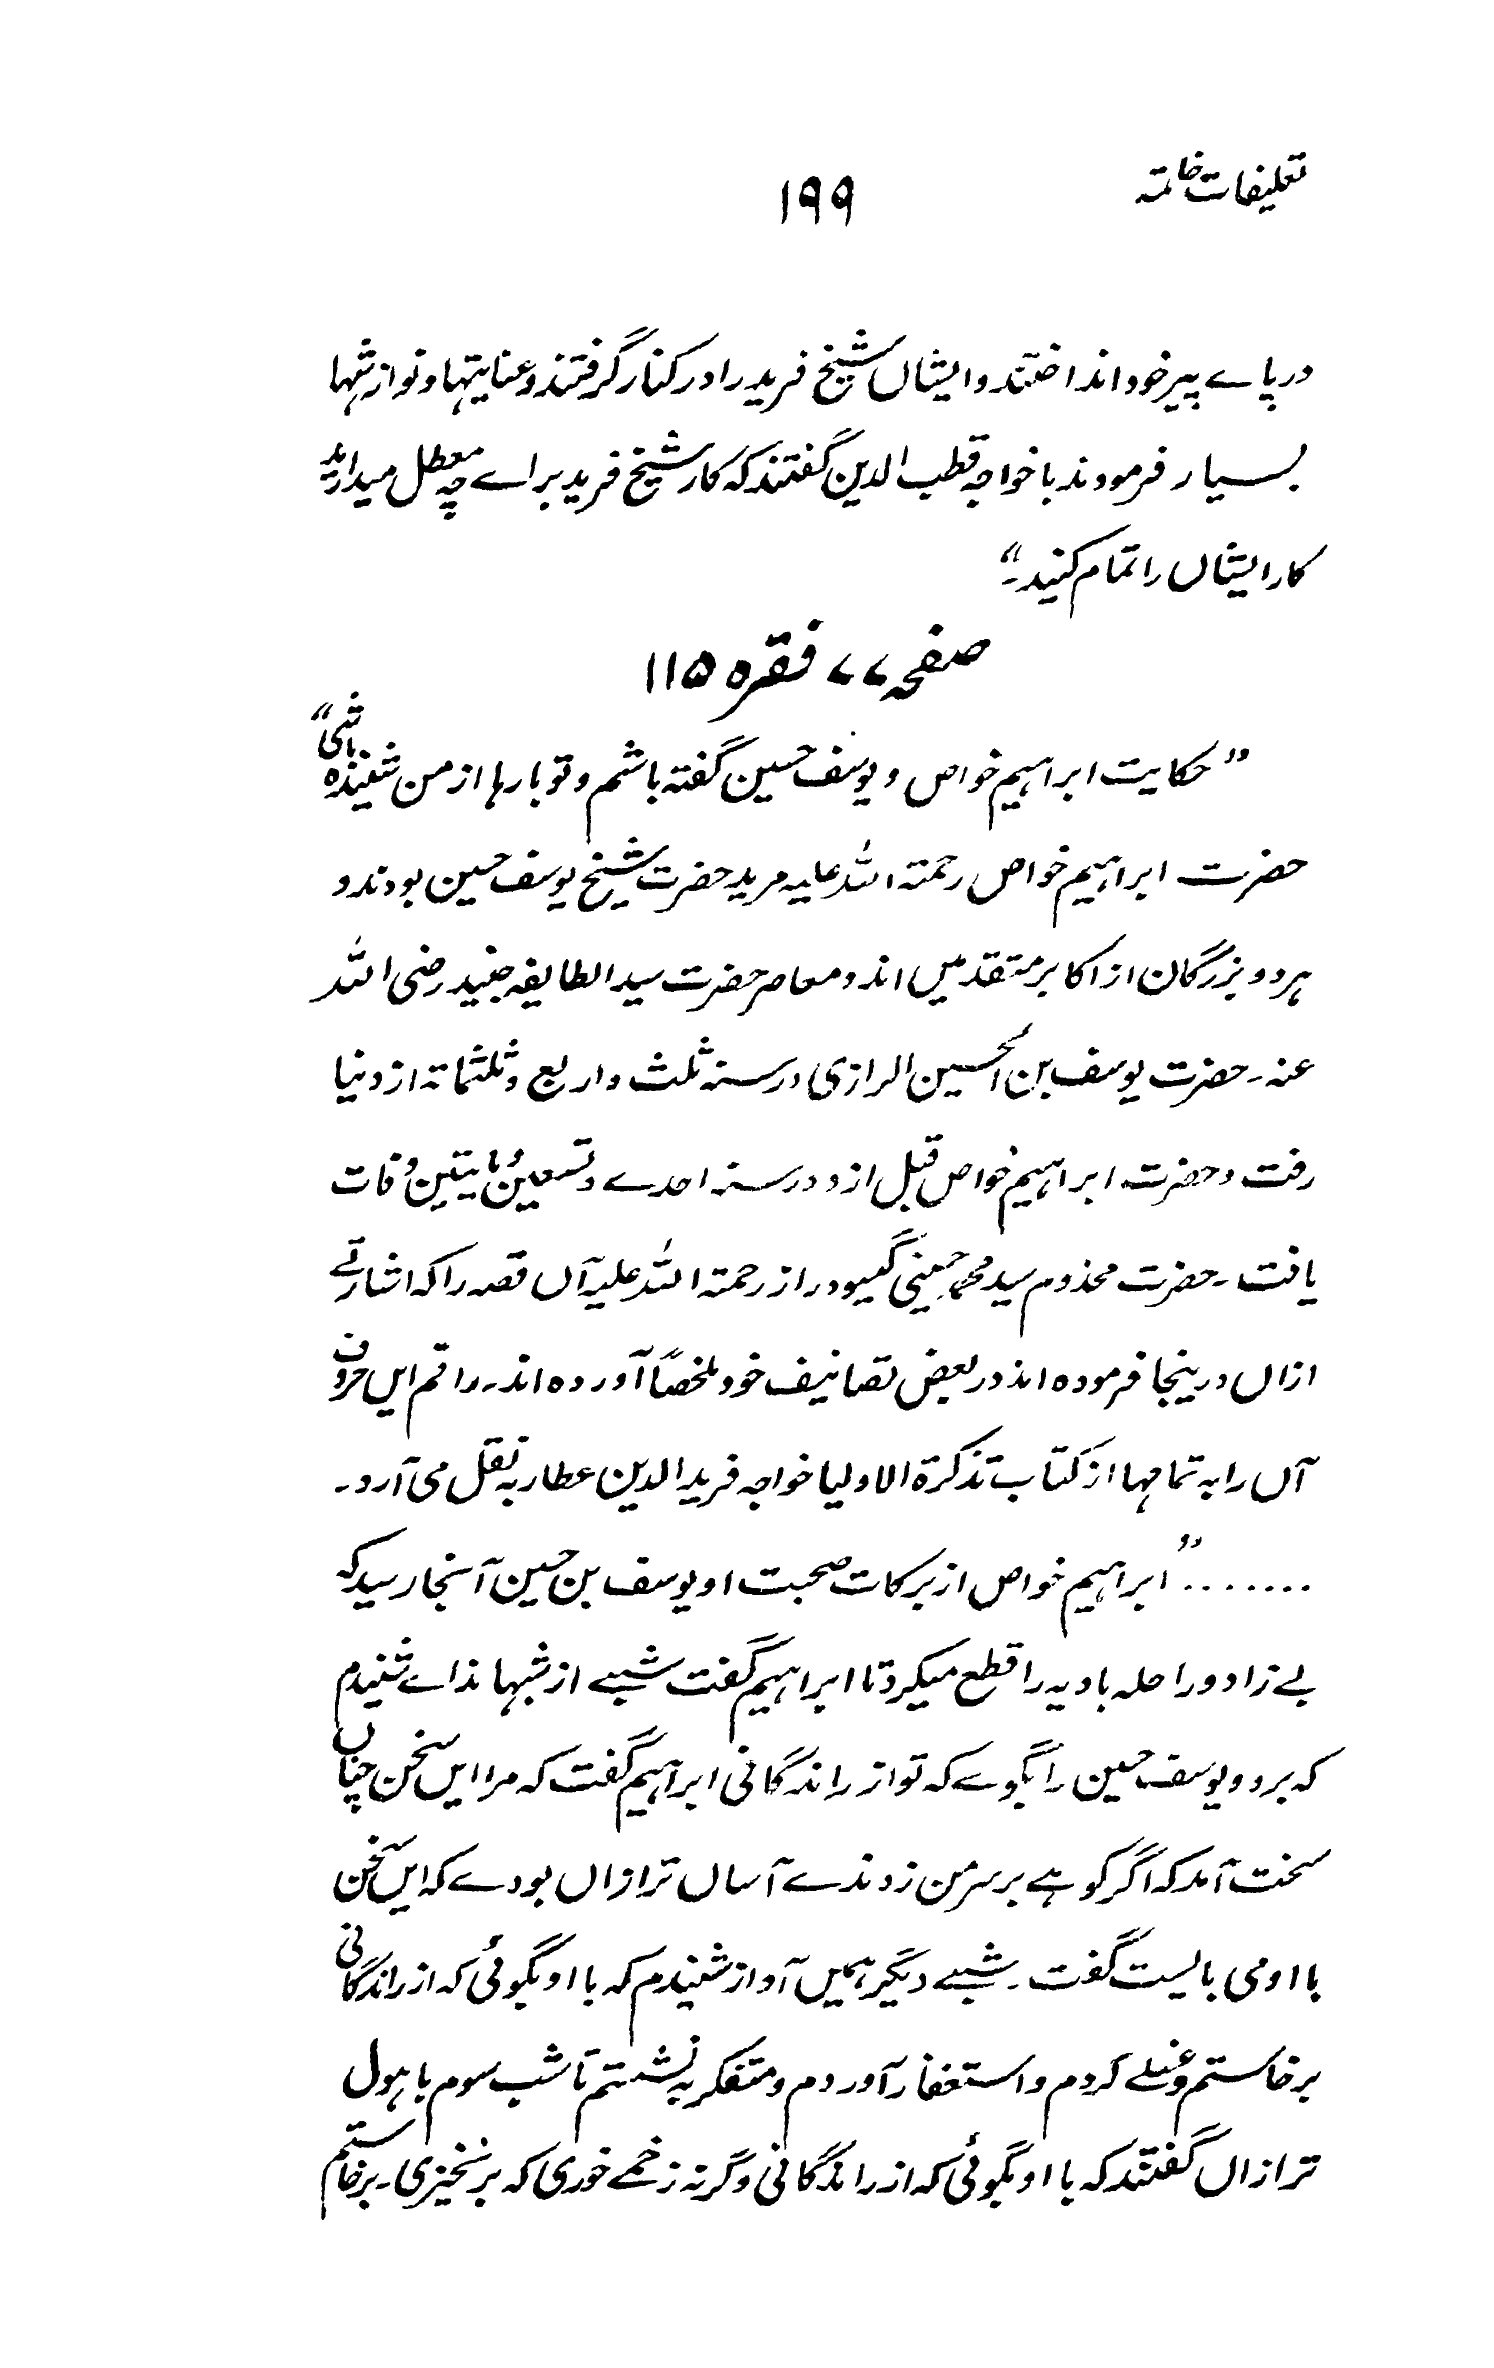 تعلیقات خاتمہ
۱۹۹
در پاے پیر خود انداختند و ایشاں شیخ فرید را در کنار گرفتند و عنایتہا و نوازشہا
بسیار فرمودند با خواجہ قطب الدین گفتند کہ کار شیخ فرید براے چہ معطل میدارید
کار ایشاں را تمام کنید۔"
صفحہ ۷۷ فقرہ ۱۱۵
"حکایت ابراہیم خواص و یوسف حسین گفتہ باشم و تو بارہا از من شنیدہ باشی"
حضرت ابراہیم خواص رحمتہ اللہ علیہ مرید حضرت شیخ یوسف حسین بودند و
ہر دو بزرگان از اکابر متقدمیں اند و معاصر حضرت سید الطایفہ جنید رضی اللہ
عنہ۔ حضرت یوسف بن الحسین الرازی در سنہ ثلث و اربع و ثلثمائۃ از دنیا
رفت و حضرت ابراہیم خواص قبل ازو در سنہ احدے و تسعین و مایتین وفات
یافت۔ حضرت مخدوم سید محمد حسینی گیسو دراز رحمتہ اللہ علیہ آں قصہ را کہ اشارتے
ازاں درینجا فرمودہ اند در بعض تصانیف خود ملخصاً آوردہ اند۔ راقم ایں حروف
آں را بہ تمامہا از کتاب تذکرۃ الاولیا خواجہ فرید الدین عطار بہ نقل می آرد۔
.......... "ابراہیم خواص از برکات صحبت او یوسف بن حسین آنجا رسید کہ
بے زاد و راحلہ بادیہ را قطع میکرد تا ابراہیم گفت شبے از شبہا نداے شنیدم
کہ برو و یوسف حسین را بگوے کہ تو از راندگانی ابراہیم گفت کہ مرا ایں سخن چناں
سخت آمد کہ اگر کوہے بر سر من زدندے آساں تر ازاں بودے کہ ایں سخن
با او می بایست گفت۔ شبے دیگر ہمیں آواز شنیدم کہ با او بگوئی کہ از راندگانی
برخاستم و غسلے کردم و استغفار آوردم و متفکر بہ نشستم تا شب سوم با ہول
تر ازاں گفتند کہ با او بگوئی کہ از راندگانی وگرنہ زخمے خوری کہ برنخیزی۔ برخاستم